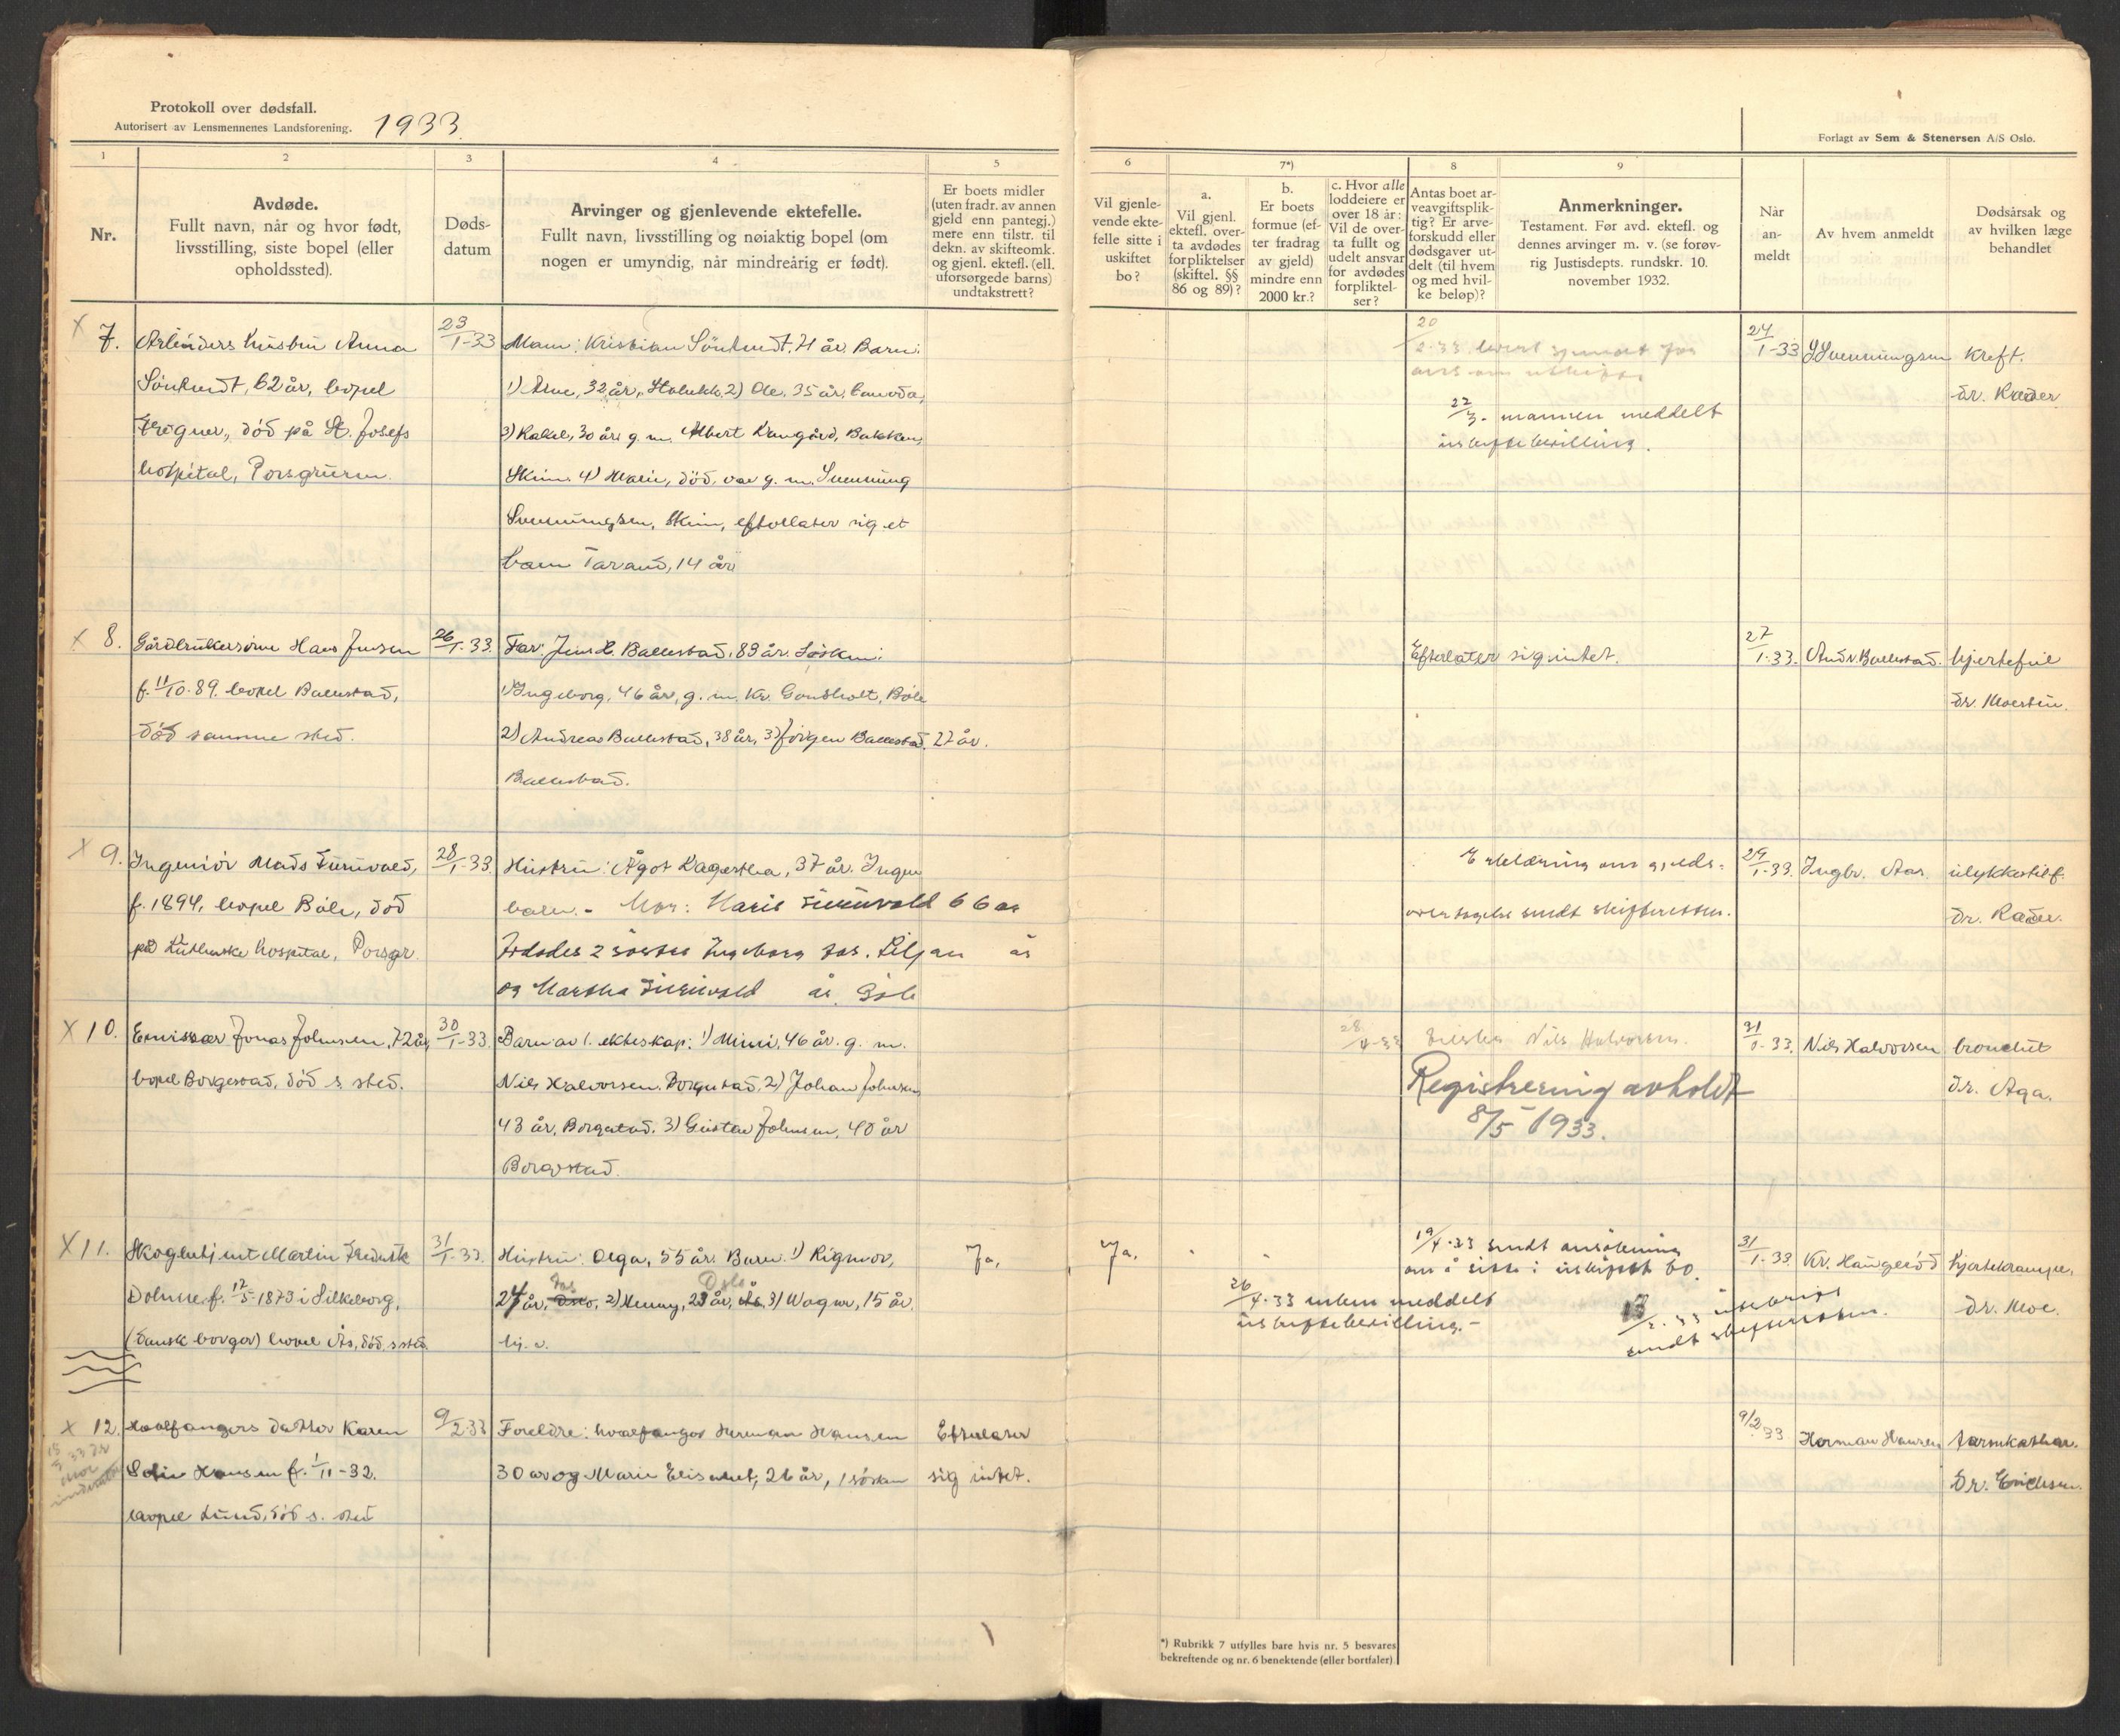 Protokoll over dødsfall.
Autorisert av Lensmennenes Landsforening. 1933.
Forlagt av Sem & Stenersen A/S Oslo.
1 2 3 4 5 6 7*) 8 9
Nr.
Avdøde.
Fullt navn, når og hvor født,
livsstilling, siste bopel (eller
opholdssted).
Døds-
datum
Arvinger og gjenlevende ektefelle.
Fullt navn, livsstilling og nøiaktig bopel (om
nogen er umyndig, når mindreårig er født).
Er boets midler
(uten fradr. av annen
gjeld enn pantegj.)
mere enn tilstr. til
dekn. av skifteomk.
og gjenl. ektefl. (ell.
uforsørgede barns)
undtakstrett?
Vil gjenle-
vende ekte-
felle sitte i
uskiftet
bo?
a.
Vil gjenl.
ektefl. over-
ta avdødes
forpliktelser
(skiftel. §§
86 og 89)?
b.
Er boets
formue (ef-
ter fradrag
av gjeld)
mindre enn
2000 kr.?
c. Hvor alle
loddeiere er
over 18 år:
Vil de over-
ta fullt og
udelt ansvar
for avdødes
forpliktel-
ser?
Antas boet ar-
veavgiftsplik-
tig? Er arve-
forskudd eller
dødsgaver ut-
delt (til hvem
og med hvil-
ke beløp)?
Anmerkninger.
Testament. Før avd. ektefl. og
dennes arvinger m. v. (se forøv-
rig Justisdepts. rundskr. 10.
november 1932.
Når
an-
meldt
Av hvem anmeldt
Dødsårsak og
av hvilken læge
behandlet
X 7.
Arbeiders hustru Anna
62 år, bopel
død på St. Josefs
hospital, Porsgrunn.
23/1-33
Mann: Kristian 71 år. Barn:
1) Arne, 32 år, 2) Ole, 35 år,
3) Rakel, 30 år g. m. Albert Bakken,
Skien 4) Marie, død, var g. m. Svenning
Svenningsen, Skien, efterlater sig et
barn Tarand, 14 år
20/2-33
22/3- mannen meddelt
uskiftebevilling.
24/1-33
S Svenningsen
Kreft.
dr. Ræder
X 8.
Gårdbrukersønn Hans Jensen
f. 11/10-89. bopel Ballestad,
død samme sted.
26/1-33.
Far: Jens H. Ballestad, 83 år. Søsken:
1) Ingeborg, 46 år, g. m. Kr. Gonsholt, Bøle
2) Andreas Ballestad, 38 år, 3) Jørgen Ballestad, 27 år.
Ballestad.
Efterlater sig intet.
27/1-33.
Andr. Ballestad.
hjertefeil
dr. Moestue.
X 9.
Ingeniør Mads Furuvald,
f. 1894, bopel Bøle, død
på Lutherske hospital, Porsgr.
28/1-33.
Hustru: Ågot Kagestha, 37 år. Ingen
barn. - Mor: Maria Furuvald 66 år
2 søstre Ingeborg Siljan år
og Martha Furuvald år. Bøle
Erklæring om gjelds-
overtagelse sendt skifteretten.
29/1-33.
Ingbr. Aas.
ulykkestilf.
dr. Ræder.
X 10.
Emissær Jonas Johnsen, 72 år,
bopel Borgestad, død s. sted.
30/1-33.
Barn av 1. ekteskap: 1) Mimi, 46 år. g. m.
Nils Halvorsen, Borgestad, 2) Johan Johnsen
43 år, Borgestad. 3) Gustav Johnsen, 40 år
Borgestad.
28/4-33
Nils Halvorsen.
Registrering avholdt
8/5 1933.
31/1-33.
Nils Halvorsen
bronchit
dr. Aga.
X 11.
Skogbetjent Martin Fredrik
f. 12/5-1873 i Silkeborg,
(dansk borger) bopel Ås, død s. sted.
31/1-33.
Hustru: Olga, 55 år. Barn: 1) Rigmor,
24 år, Oslo, 2) Henny, 23 år, Oslo, 3) Wagner, 15 år,
hj. v.
Ja,
Ja.
26/4-33 enken meddelt
uskiftebevilling.-
19/4-33 sendt ansøkning
om å sitte i uskiftet bo.
sendt skifteretten.
31/1-33.
Kr. Haugerød
hjertekrampe,
dr. Moe.
X 12.
Hvalfangers datter Karen
Sofie Hansen f. 1/11-32.
bopel Lund, død s. sted
9/2-33
Foreldre: hvalfanger Herman Hansen
30 år og Marie Elisabet, 26 år, 1 søsken
Efterlater
sig intet.
9/2-33
Herman Hansen
tarmkathar.
Dr. Erichsen.
*) Rubrikk 7 utfylles bare hvis nr. 5 besvares
bekreftende og nr. 6 benektende (eller bortfaler).